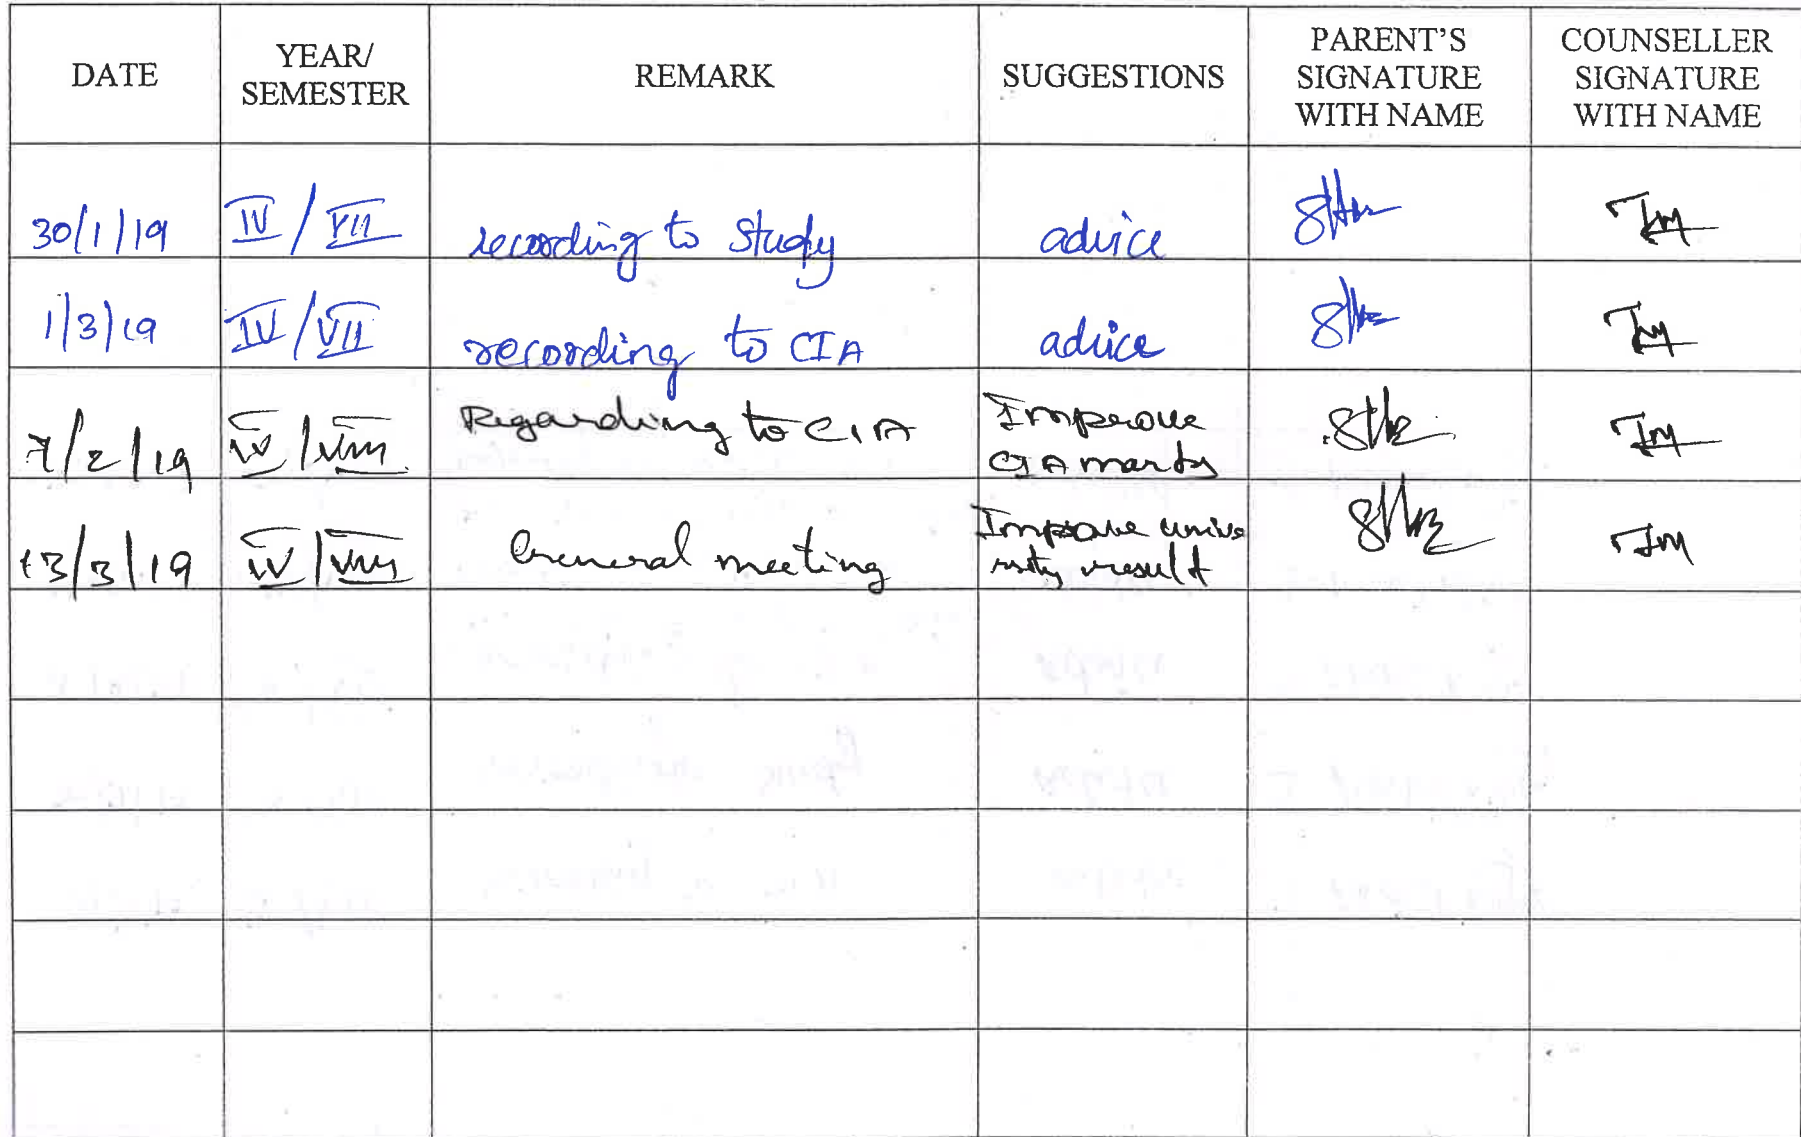 DATE
YEAR/
SEMESTER
REMARK
SUGGESTIONS
PARENT'S
SIGNATURE
WITH NAME
COUNSELLER
SIGNATURE
WITH NAME
30/1/19 IV / VII recording to Study advice
1/3/19 IV/VII recording to CIA advice
7/2/19 IV/VIII Regarding to CIA Improve
CIA marks
13/3/19 IV/VIII General meeting Improve unive
rsity result